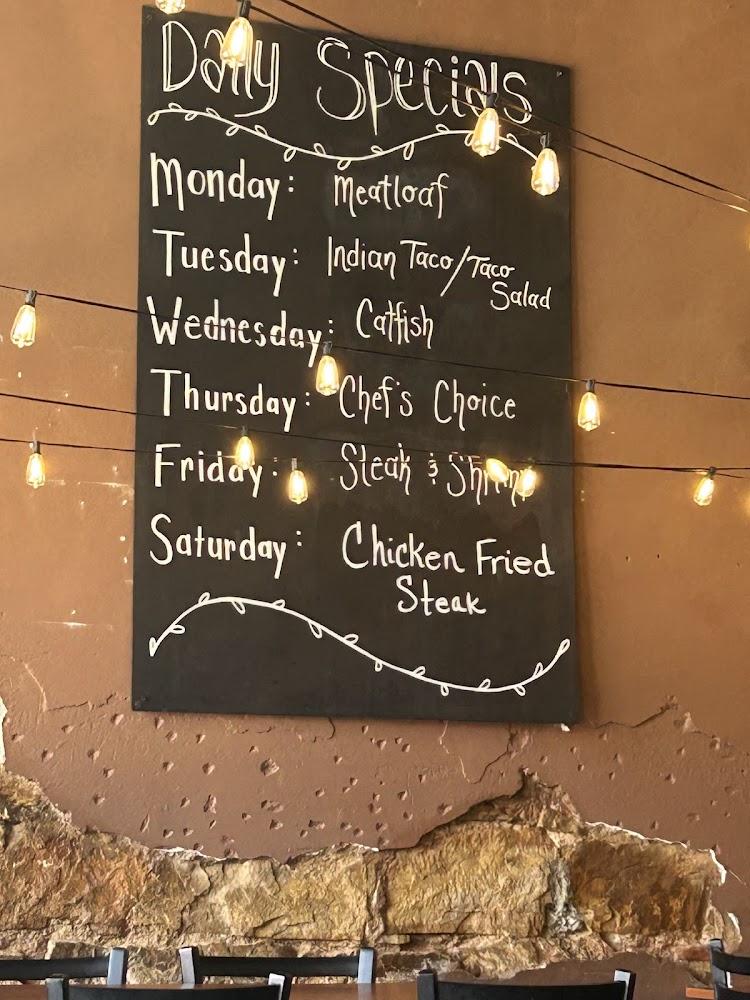 Daily Specials
Monday: Meatloaf
Tuesday: Indian Taco/Taco
Salad
Wednesday: Catfish
Thursday: Chef's Choice
Friday: Steak & Shrimp
Saturday: Chicken Fried
Steak